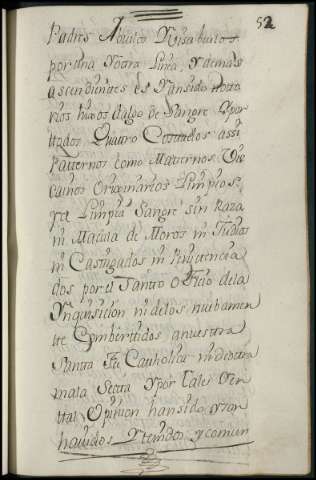 52
Padres Abuelos Visabuelos
por una Y otra Linea, Y demas
ascendientes es Y an sido notto
rios hijos dalgo de Sangre Y por
ttodos Quatro Costtados assi
Patternos como Matternos Viz
cainos Originarios Limpios
Limpia Sangre sin Raza
ni Macula de Moros ni Judios
ni Casttigados ni Penitencia
dos por el Santto Oficio dela
Ynquisicion ni delos nuebamen
tte Combertidos a nuesttra
Santta Fee Catholica ni de ottra
mala Sectta Y por tales
Opinion han sido Y son
havidos Y tenidos y comun